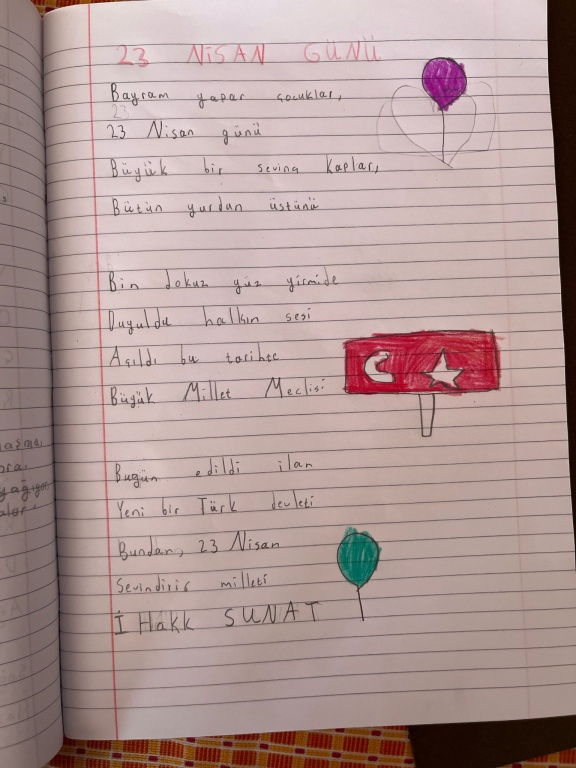 23 NİSAN GÜNÜ
Bayram yapar çocuklar,
23
23 Nisan günü
Büyük bir sevinç kaplar,
Bütün yurdun üstünü
Bin dokuz yüz yirmide
Duyuldu halkın sesi
Açıldı bu tarihte
Büyük Millet Meclisi
Bugün edildi ilan
Yeni bir Türk devleti
Bundan, 23 Nisan
Sevindirir milleti
İ Hakk SUNAT
yağıyor,